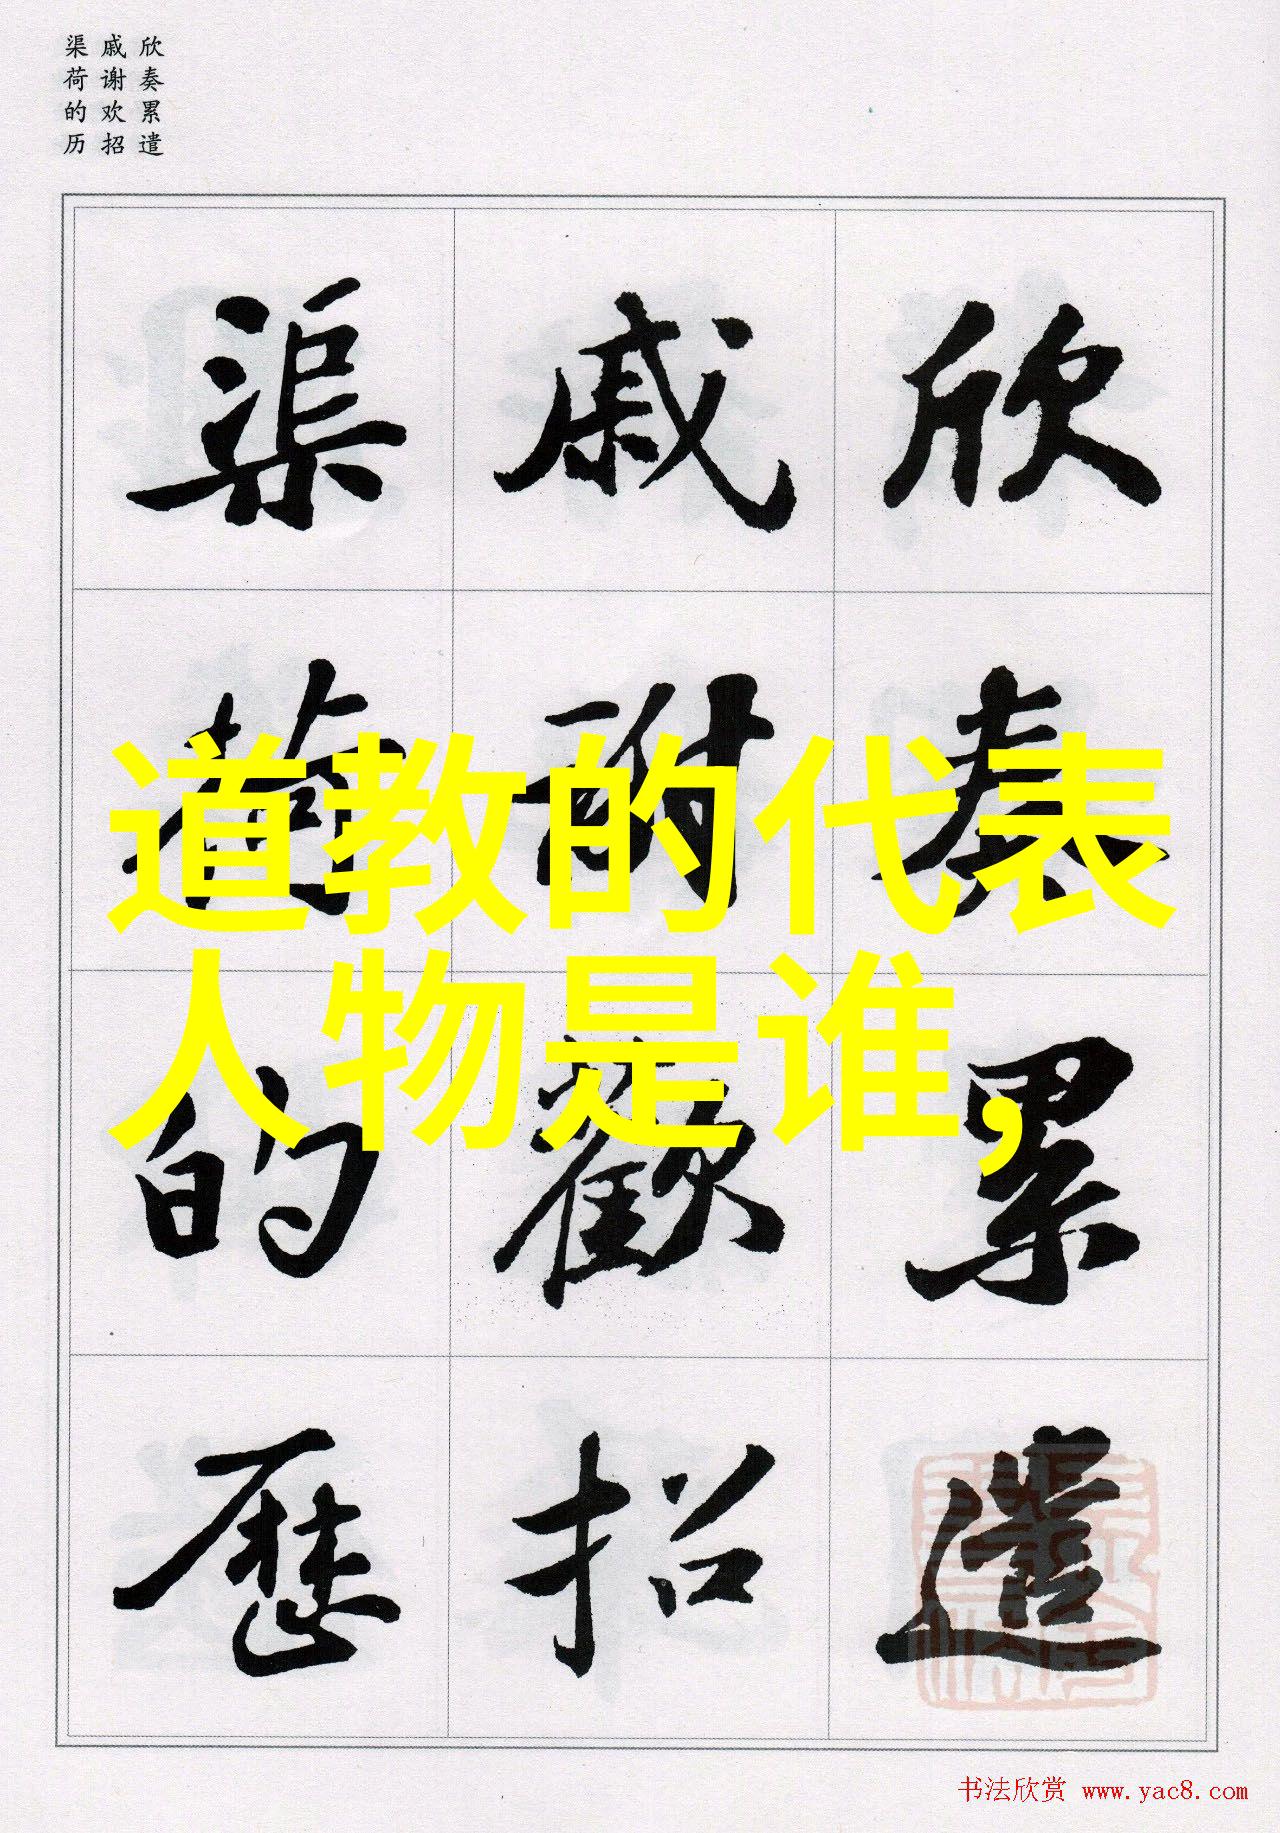 欣奏累遣
戚谢欢招
渠荷的历
欣奏累遣
戚謝歡招
渠荷的歷
道教的代表
人物是谁,
书法欣赏 www.yac8.com